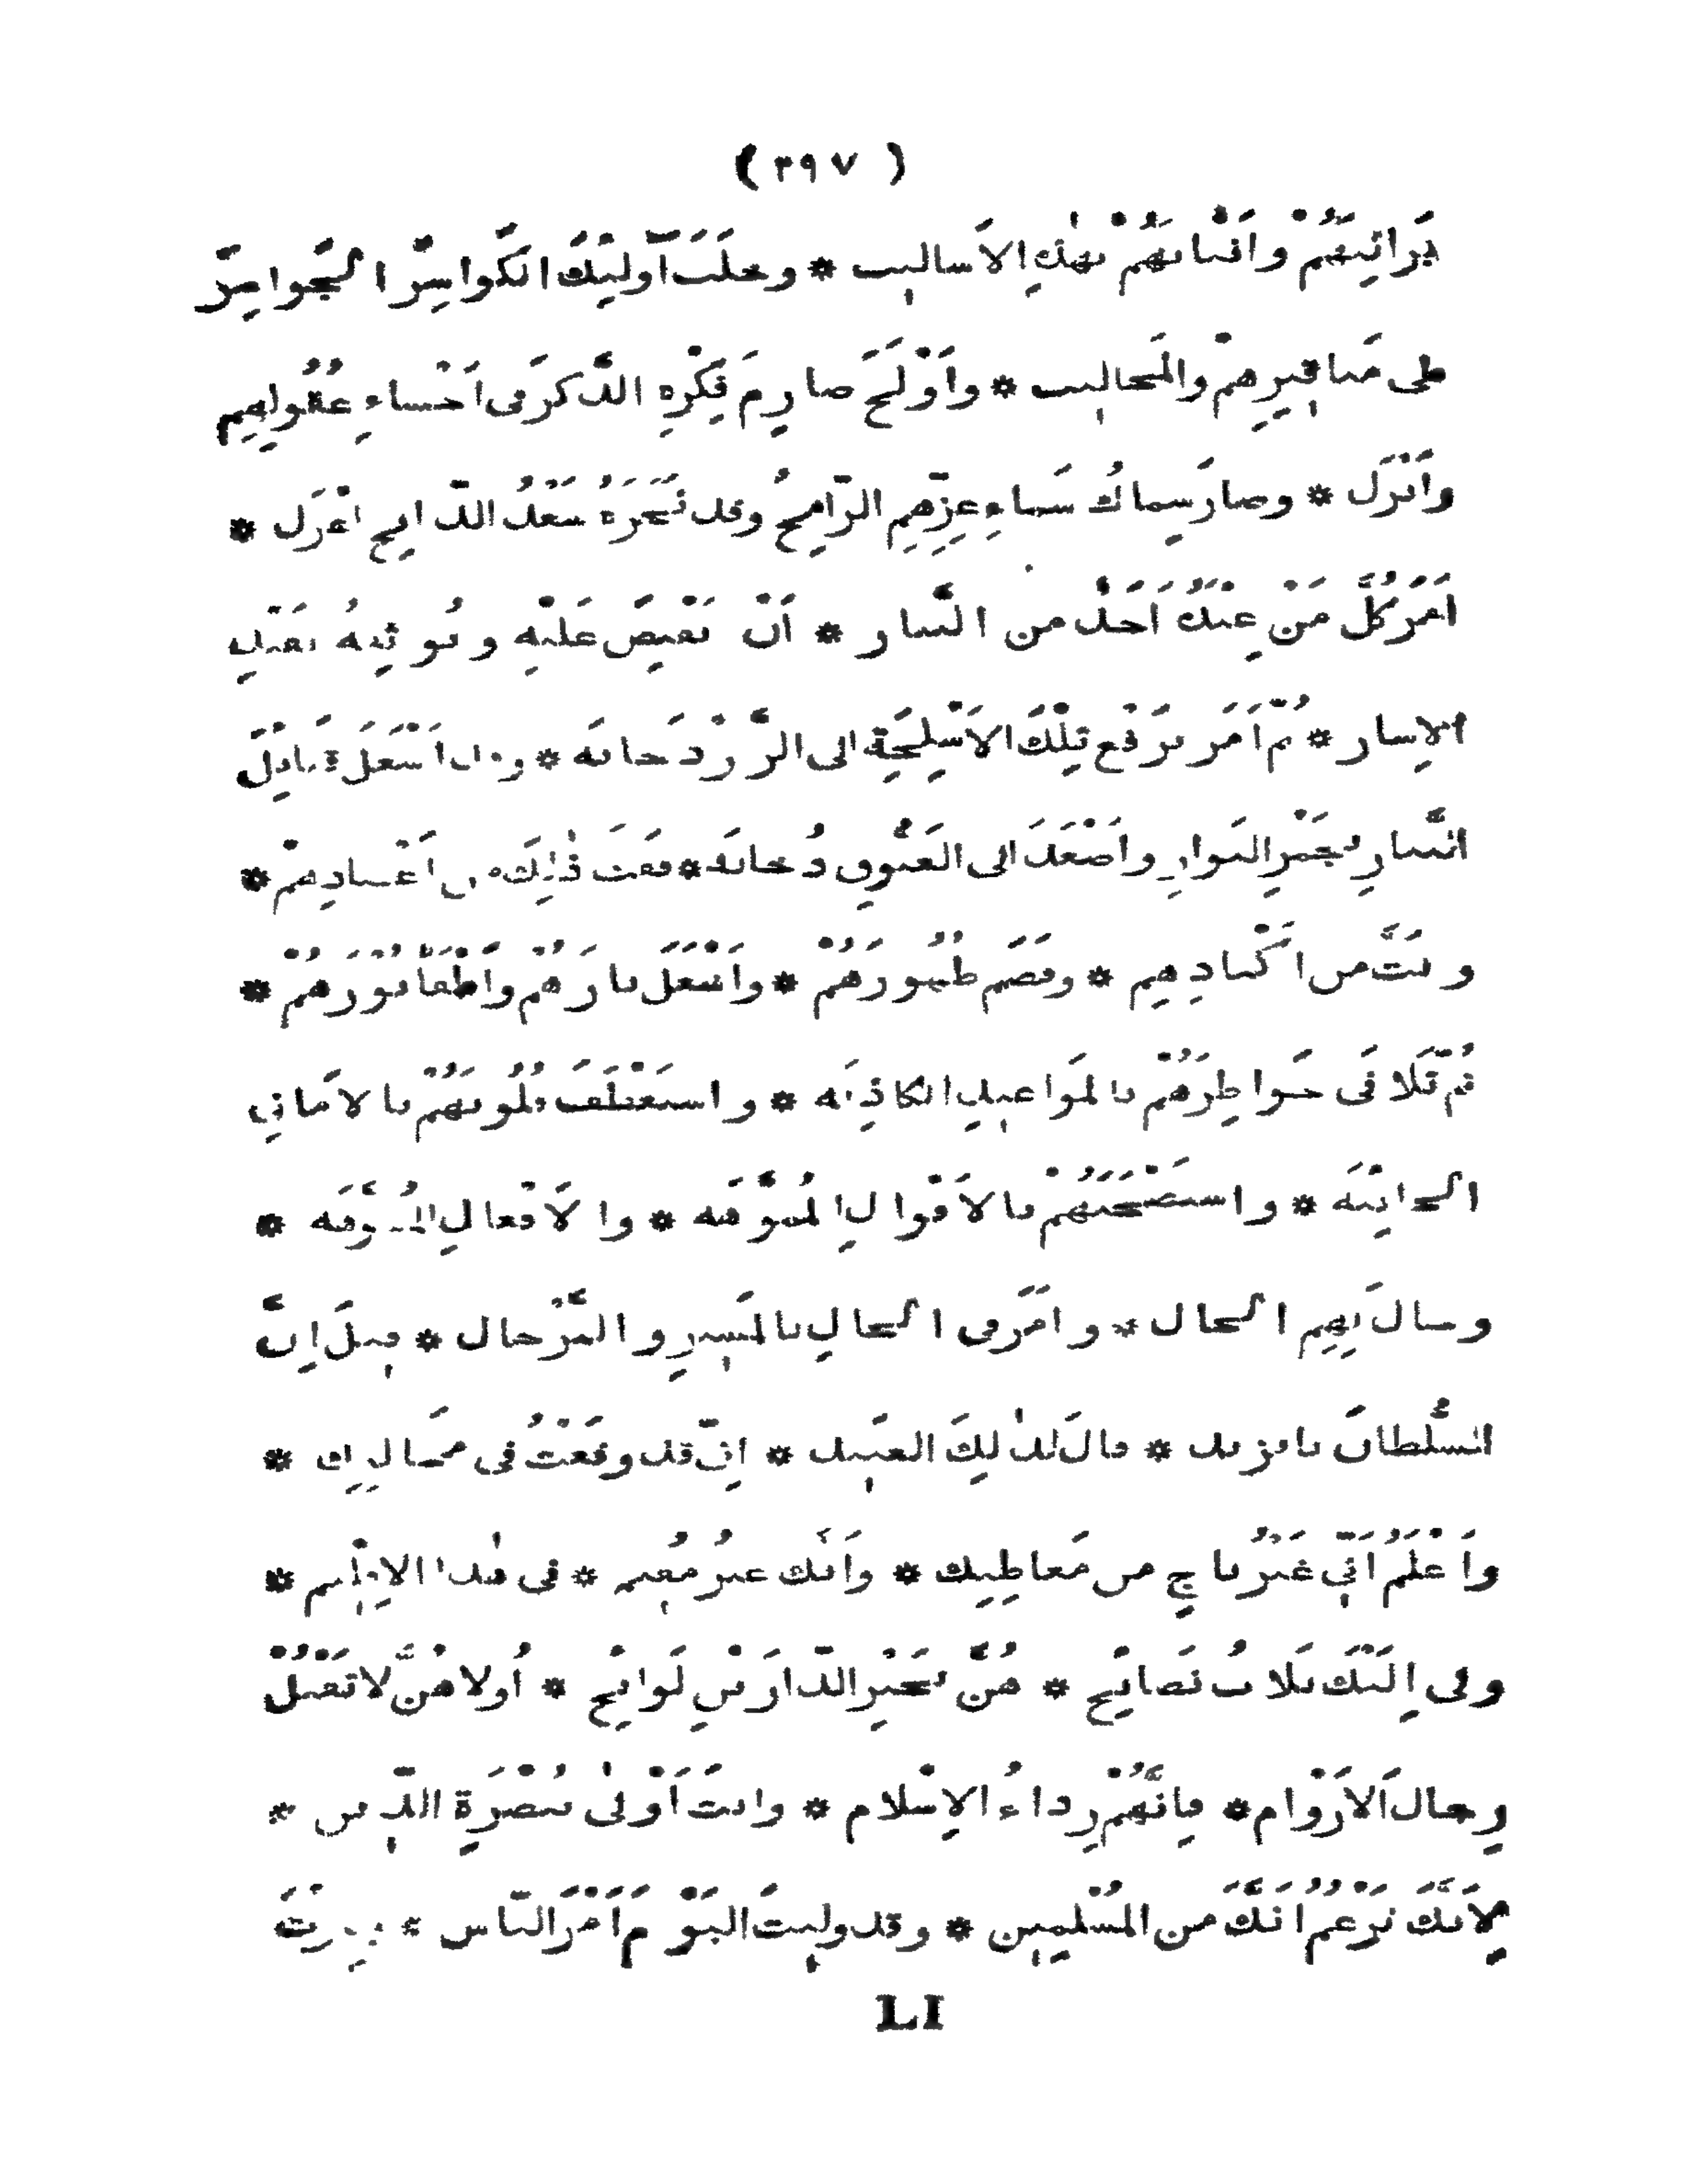 ( ٣٩٧ )
بَراثِنَهُمْ وأَنْيابَهُمْ بهٰذِهِ الأَساليب * وخلَبَ أُولَئِكَ الكَواسِرَ الجَوارِحَ
مَناقِيرِهِمْ والمَخاليب * وأَوْلَجَ صارِمَ فِكْرِهِ الذَّكَرَ في أَحْشاءِ عُقُولِهِم
وأَنْزَل * وصار سِماكُ سَماءِ عِزِّهِمِ الرّامِحُ وقد نَحَرَهُ سَعْدُ الذّابِحِ أَعْزَل *
أَمَرَ كُلَّ مَنْ عِنْدَهُ أَحَدٌ من التَّتار * أَنْ يَقْبِضَ عَلَيْهِ ويُوثِقَهُ بقَيْدِ
الإِسار * ثُمَّ أَمَرَ بِرَفْعِ تِلْكَ الأَسْلِحَةِ الى الزَّرْدَخانَه * وقد أَشْعَلَ قبائِلَ
التَّتارِ بجَمْرِ البَوارِ وأَصْعَدَ الى العَيُّوقِ دُخانَه * ففَتَّ ذٰلِكَ من أَعْضادِهِمْ *
وبَتَّ من أَكْبادِهِم * وقصَمَ ظُهُورَهُمْ * وأَشْعَلَ نارَهُمْ وأَطْفَأَ نُورَهُمْ *
ثُمَّ تَلافَى خَواطِرَهُمْ بالمَواعِيدِ الكاذِبَه * واسْتَعْطَفَ قُلُوبَهُمْ بالأَماني
الخائِبَه * واسْتَصْحَبَهُمْ بالأَقْوالِ المُمَوَّهَه * والأَفْعالِ
وحالَ بِهِمِ الحال * وأَمَرَ في الحالِ بالمَسيرِ والتَّرْحال * قيلَ إِنَّ
السُّلْطانَ بايَزيد * قالَ لذٰلِكَ العَنيد * إِنّي قد وقَعْتُ في مَخالِبِك *
وأَعْلَمُ أَنِّي غَيْرُ ناجٍ من مَعاطِبِك * وأَنَّكَ غيرُ مُقيم * في هٰذا الإِقْليم *
ولي إِلَيْكَ ثَلاثُ نَصائِح * هُنَّ بخَيْرِ الدّارَيْنِ لَوائِح * أُولاهُنَّ لا تَقْتُلْ
رِجالَ الأَرْوام * فإِنَّهُمْ رِداءُ الإِسْلام * وأنتَ أَوْلىٰ بنُصْرَةِ الدّين *
لِأَنَّكَ تَزْعُمُ أَنَّكَ منَ المُسْلِمين * وقد وليتَ اليَوْمَ أَمْرَ النّاس *
LI